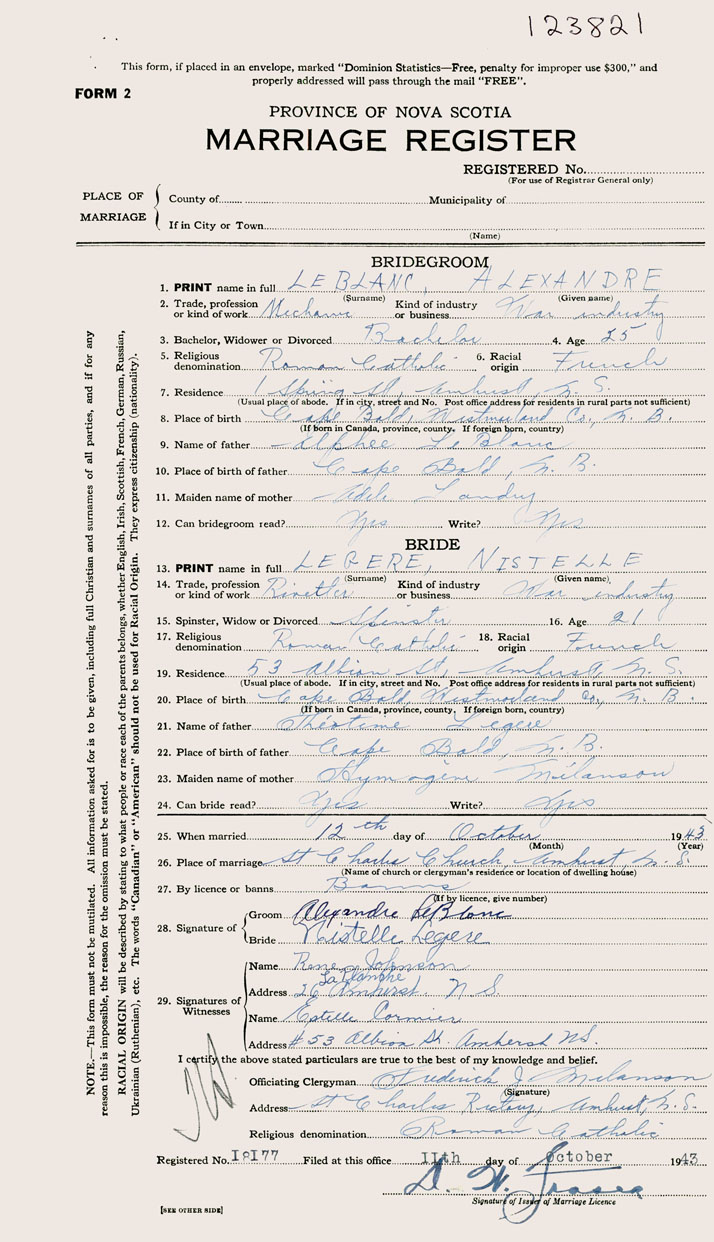 123821
This form, if placed in an envelope, marked "Dominion Statistics—Free, penalty for improper use $300," and
properly addressed will pass through the mail "FREE".
FORM 2
PROVINCE OF NOVA SCOTIA
MARRIAGE REGISTER
REGISTERED No.
(For use of Registrar General only)
PLACE OF MARRIAGE
County of Municipality of
If in City or Town
(Name)
BRIDEGROOM
1. PRINT name in full LEBLANC, ALEXANDRE
(Surname) (Given name)
2. Trade, profession or kind of work Mechanic Kind of industry or business War industry
3. Bachelor, Widower or Divorced Bachelor 4. Age 25
5. Religious denomination Roman Catholic 6. Racial origin French
7. Residence 1 Spring St, Amherst N.S.
(Usual place of abode. If in city, street and No. Post office address for residents in rural parts not sufficient)
8. Place of birth Cape Bald, Westmorland Co., N.B.
(If born in Canada, province, county. If foreign born, country)
9. Name of father Alphee LeBlanc
10. Place of birth of father Cape Bald, N.B.
11. Maiden name of mother Adele Landry
12. Can bridegroom read? Yes Write? Yes
BRIDE
13. PRINT name in full LEGERE, NISTELLE
(Surname) (Given name)
14. Trade, profession or kind of work Rivetter Kind of industry or business War industry
15. Spinster, Widow or Divorced Spinster 16. Age 21
17. Religious denomination Roman Catholic 18. Racial origin French
19. Residence 53 Albion St, Amherst N.S.
(Usual place of abode. If in city, street and No. Post office address for residents in rural parts not sufficient)
20. Place of birth Cape Bald, Westmorland Co., N.B.
(If born in Canada, province, county. If foreign born, country)
21. Name of father Théotime Legere
22. Place of birth of father Cape Bald, N.B.
23. Maiden name of mother Hymogène Melanson
24. Can bride read? Yes Write? Yes
25. When married 12th day of October 1943
(Month) (Year)
26. Place of marriage St Charles Church, Amherst, N.S.
(Name of church or clergyman's residence or location of dwelling house)
27. By licence or banns Banns
(If by licence, give number)
28. Signature of
Groom Alexandre LeBlanc
Bride Nistelle Legere
29. Signatures of Witnesses
Name Rene Johnson
La Planche
Address 26 Amherst. N.S.
Name Estelle Cormier
Address #53 Albion St. Amherst NS.
I certify the above stated particulars are true to the best of my knowledge and belief.
Officiating Clergyman Frederick J. Melanson
(Signature)
Address St Charles Rectory, Amherst, N.S.
Religious denomination Roman Catholic
Registered No. 18177 Filed at this office 11th day of October 1943
Signature of Issuer of Marriage Licence
[SEE OTHER SIDE]
NOTE.—This form must not be mutilated. All information asked for is to be given, including full Christian and surnames of all parties, and if for any
reason this is impossible, the reason for the omission must be stated.
RACIAL ORIGIN will be described by stating to what people or race each of the parents belongs, whether English, Irish, Scottish, French, German, Russian,
Ukrainian (Ruthenian), etc. The words "Canadian" or "American" should not be used for Racial Origin. They express citizenship (nationality).